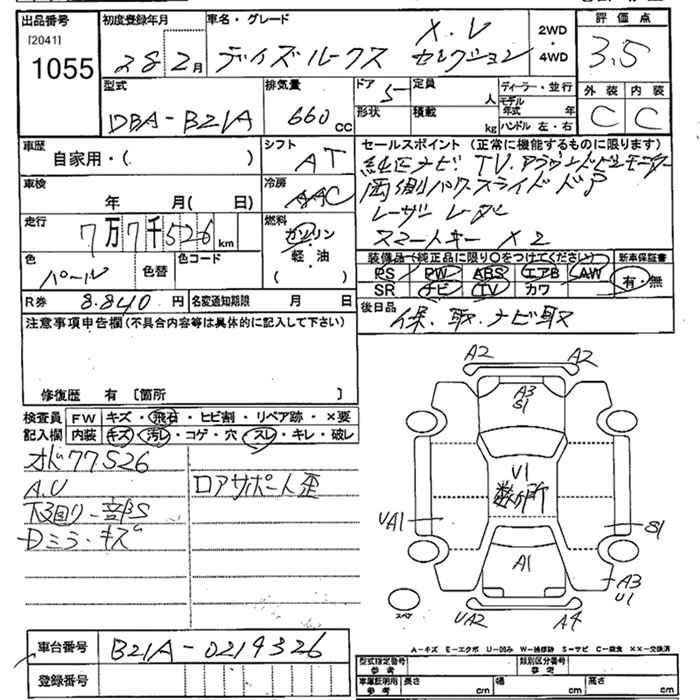 出品番号 初度登録年月 車名・グレード 評価点
[2041]
1055
28 2月 デイズルークス X.V セレクション 2WD・4WD 3.5
型式 排気量 ドア 定員 ディーラー・並行 外装 内装
DBA-B21A 660cc 5 人 モデル年式 年 C C
形状 積載 kg ハンドル 左・右
車歴 シフト セールスポイント (正常に機能するものに限ります)
自家用・( ) AT 純正ナビ TV アラウンドビューモニター
車検 冷房 両側パワースライドドア
年 月( 日) AAC レーザーレーダー
走行 燃料 スマートキー X2
7万7千526km ガソリン・軽・油
( )
色 色替 色コード 装備品(純正品に限り○をつけてください) 新車保証書
パール PS PW ABS エアB AW 有・無
SR ナビ TV カワ
R券 8.840円 名変通知期限 月 日 後日品 保.取.ナビ取
注意事項申告欄(不具合内容等は具体的に記入して下さい)
修復歴 有 [箇所 ]
検査員 FW キズ・飛石・ヒビ割・リペア跡・×要
記入欄 内装 キズ・汚レ・コゲ・穴・スレ・キレ・破レ
77526
A.U ロアサポート歪
下回り一部S
Dミラーキズ
A2 A2
A3
S1
U1
数ヶ所
UA1 S1
A1
A3
U1
スペア UA2 A4
車台番号 B21A-0219326
登録番号
A-キズ E-エクボ U-凹み W-補修跡 S-サビ C-腐食 XX-交換済
型式指定番号 参考 類別区分番号 参考
車庫証明用 参考 長さ cm 幅 cm 高さ cm